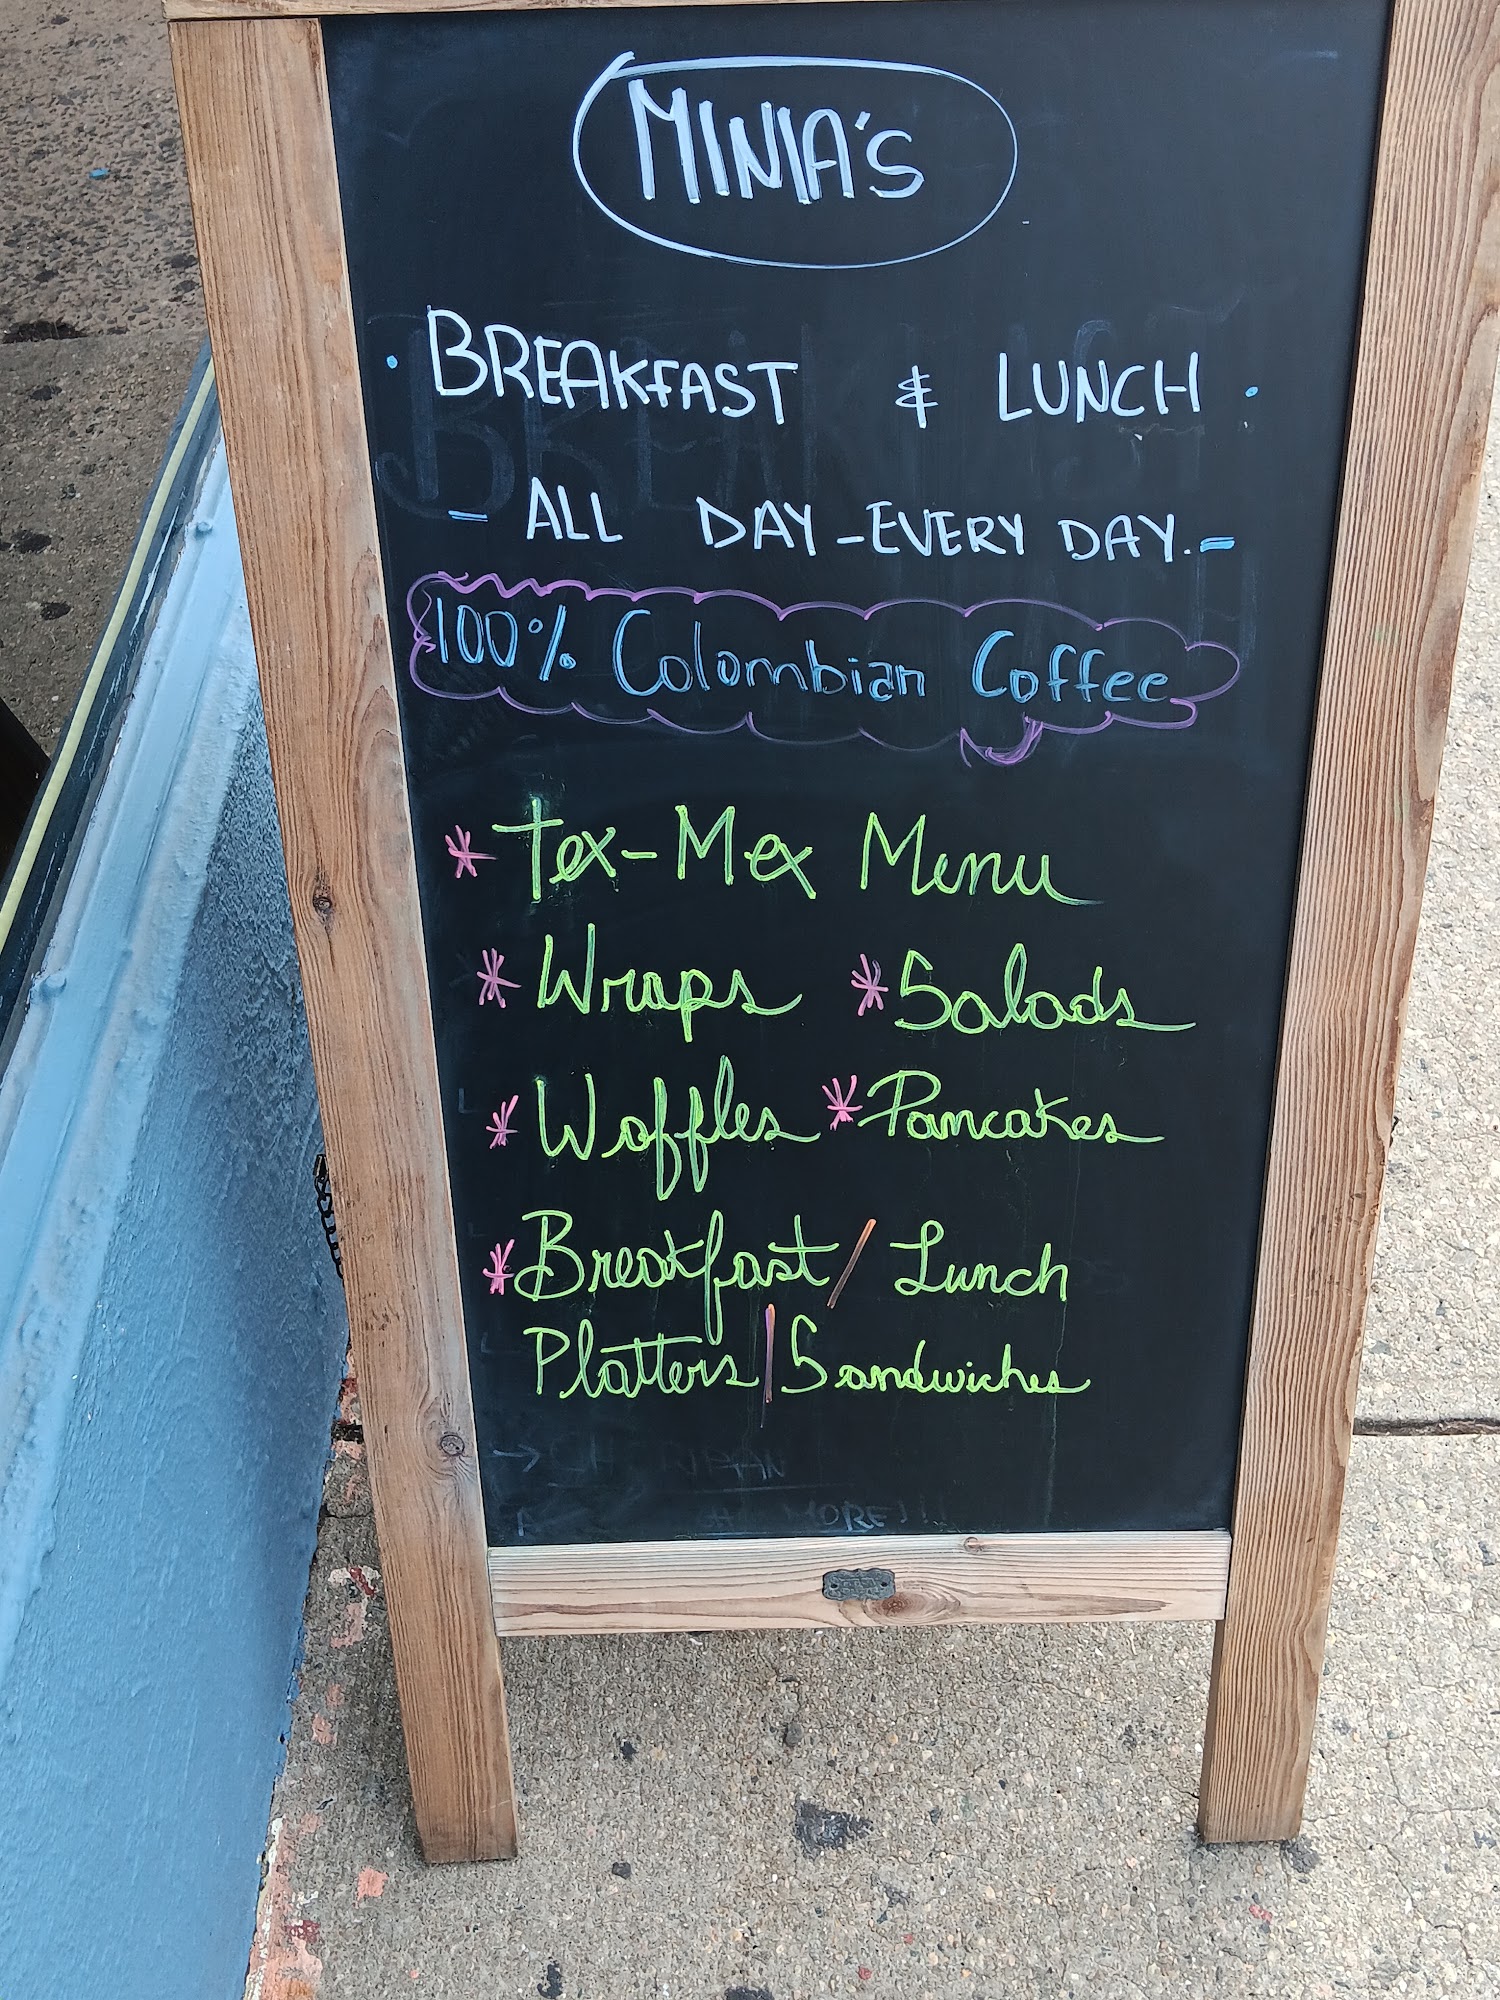 MINIA'S
BREAKFAST & LUNCH
- ALL DAY - EVERY DAY. -
100% Colombian Coffee
* Tex-Mex Menu
* Wraps * Salads
* Waffles * Pancakes
* Breakfast / Lunch
Platters | Sandwiches
MORE!!!